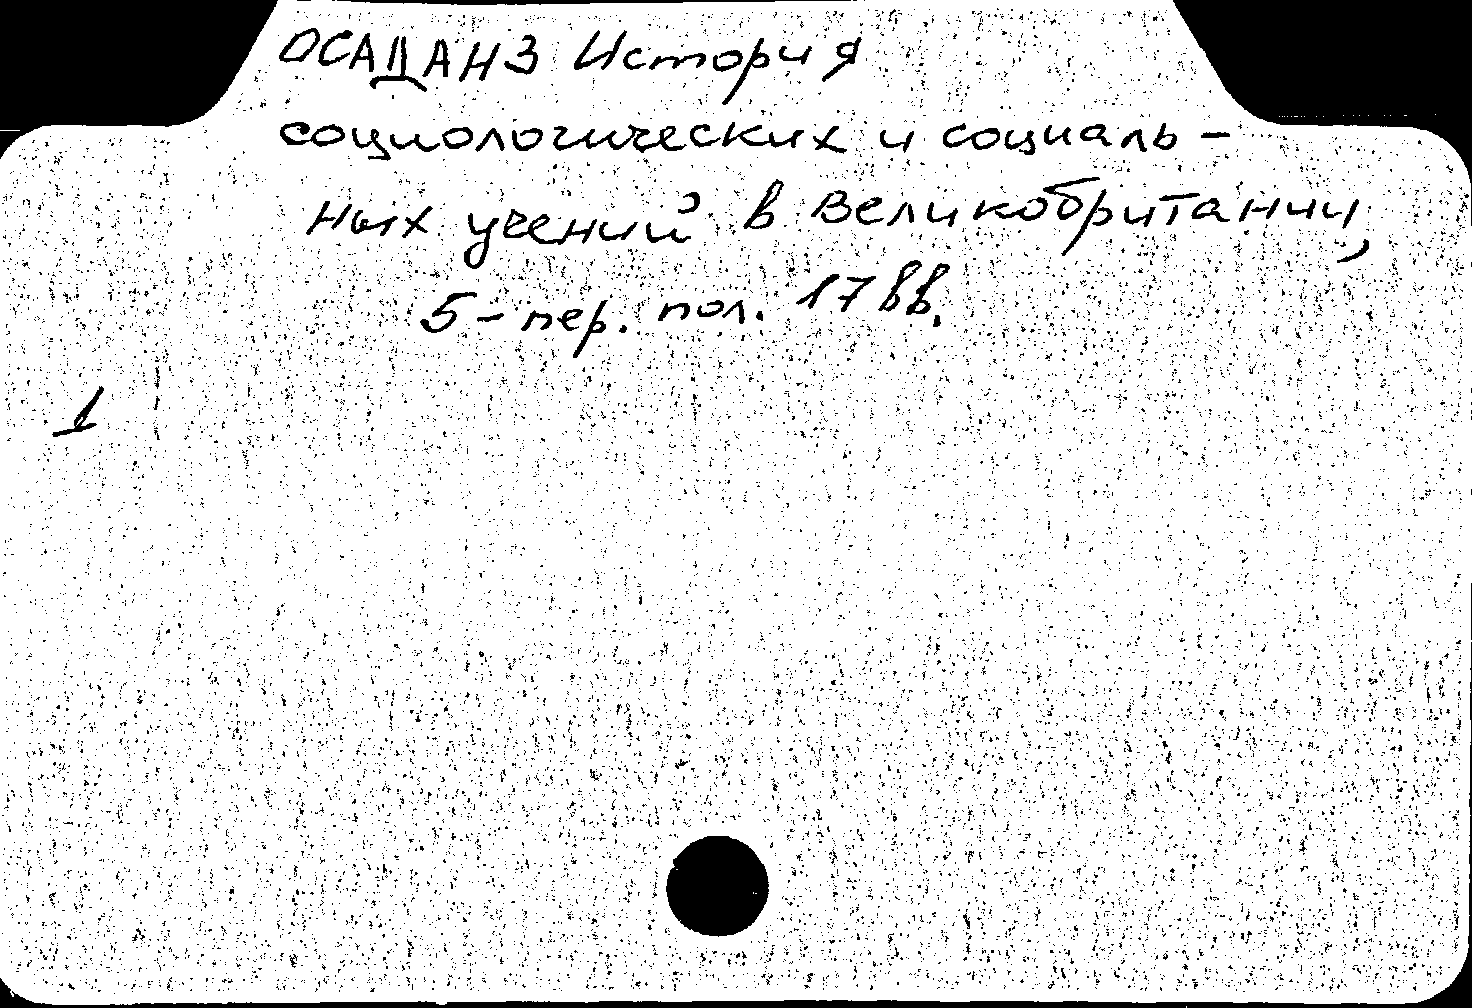 ОСАДАНЗ История
социологических и социаль -
ных учений в Великобритании,
5 - пер. пол. 17 вв.
1